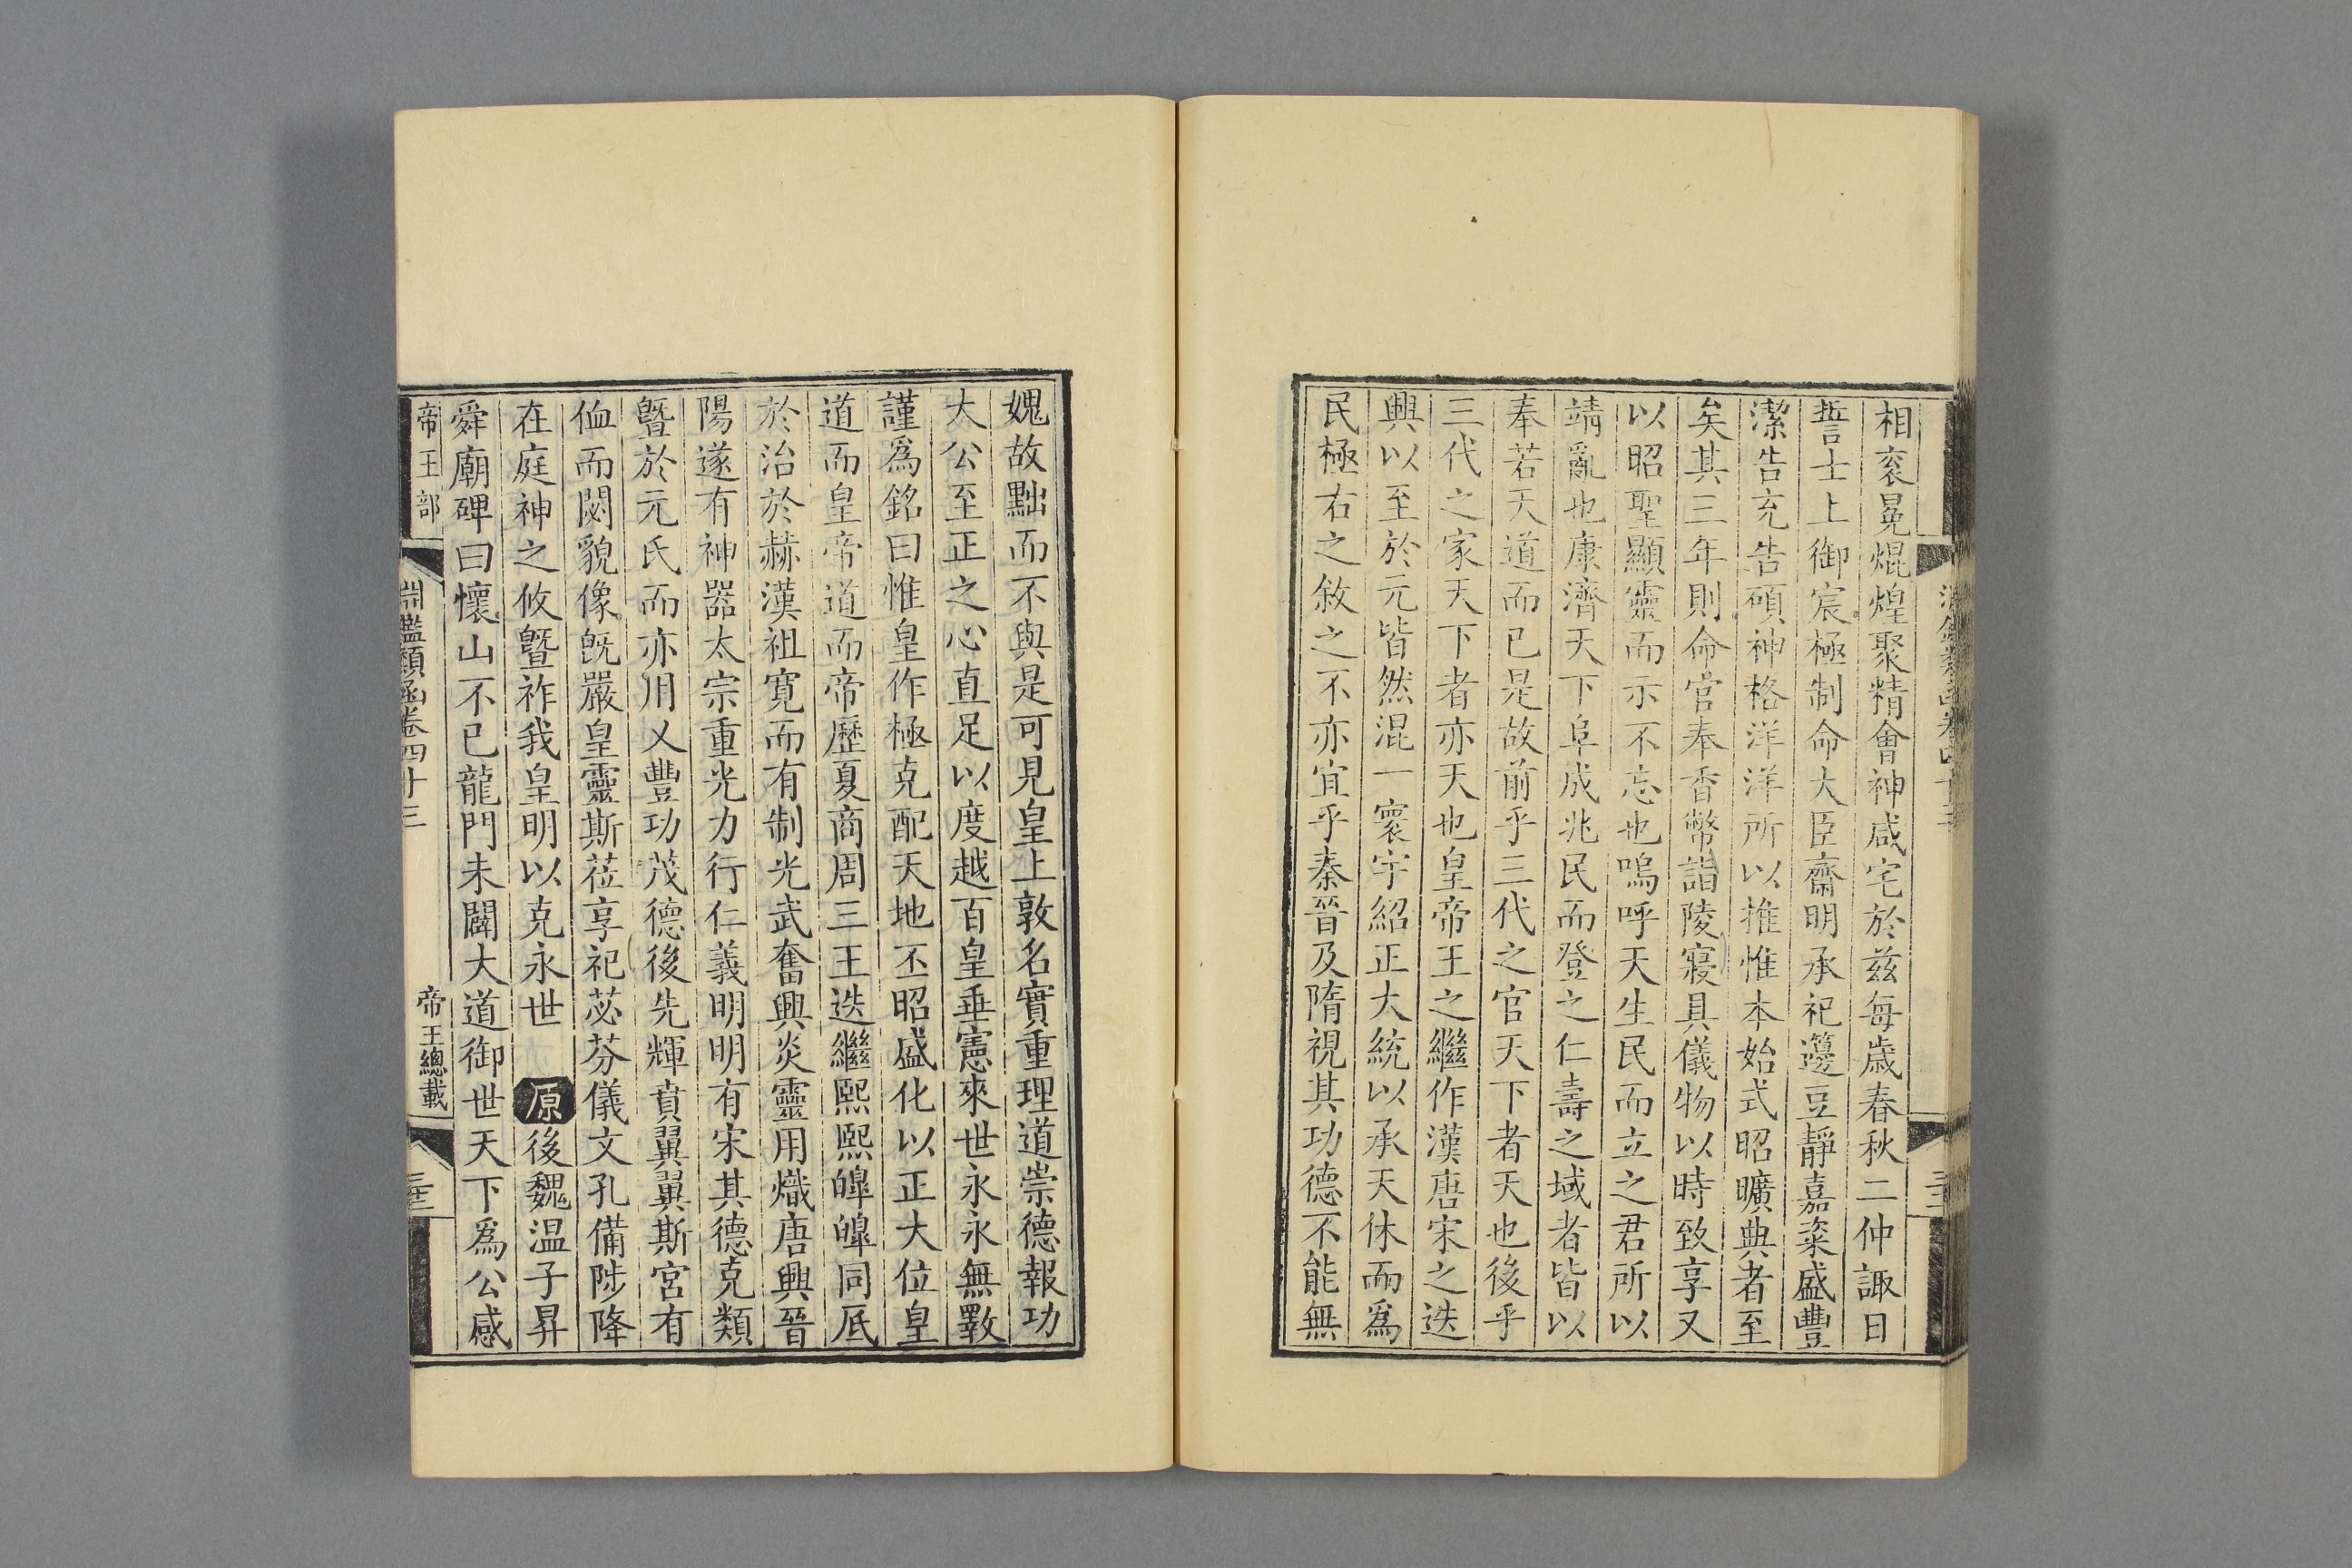 相袞冕焜煌聚精會神咸宅於兹每歳春秋二仲諏日
誓士上御宸極制命大臣齋明承祀籩豆靜嘉粢盛豐
潔告充告碩神格洋洋所以推惟本始式昭曠典者至
矣其三年則命官奉香幣詣陵寢具儀物以時致享又
以昭聖顯靈而示不忘也嗚呼天生民而立之君所以
靖亂也康濟天下阜成兆民而登之仁壽之域者皆以
奉若天道而已是故前乎三代之官天下者天也後乎
三代之家天下者亦天也皇帝王之繼作漢唐宋之迭
興以至於元皆然混一寰宇紹正大統以承天休而爲
民極右之敘之不亦宜乎秦晉及隋視其功德不能無
媿故黜而不與是可見皇上敦名實重理道崇德報功
大公至正之心直足以度越百皇垂憲來世永永無斁
謹爲銘曰惟皇作極克配天地丕昭盛化以正大位皇
道而皇帝道而帝歷夏商周三王迭繼熙熙皥皥同底
於治於赫漢祖寛而有制光武奮興炎靈用熾唐興晉
陽遂有神器太宗重光力行仁義明明有宋其德克類
曁於元氏而亦用乂豐功茂德後先輝賁翼翼斯宮有
侐而閟貌像旣嚴皇靈斯莅享祀苾芬儀文孔備陟降
在庭神之攸曁祚我皇明以克永世 原後魏温子昇
舜廟碑曰懷山不已龍門未闢大道御世天下爲公感
帝王部 淵鑑類函卷四十三 帝王總載 三十三